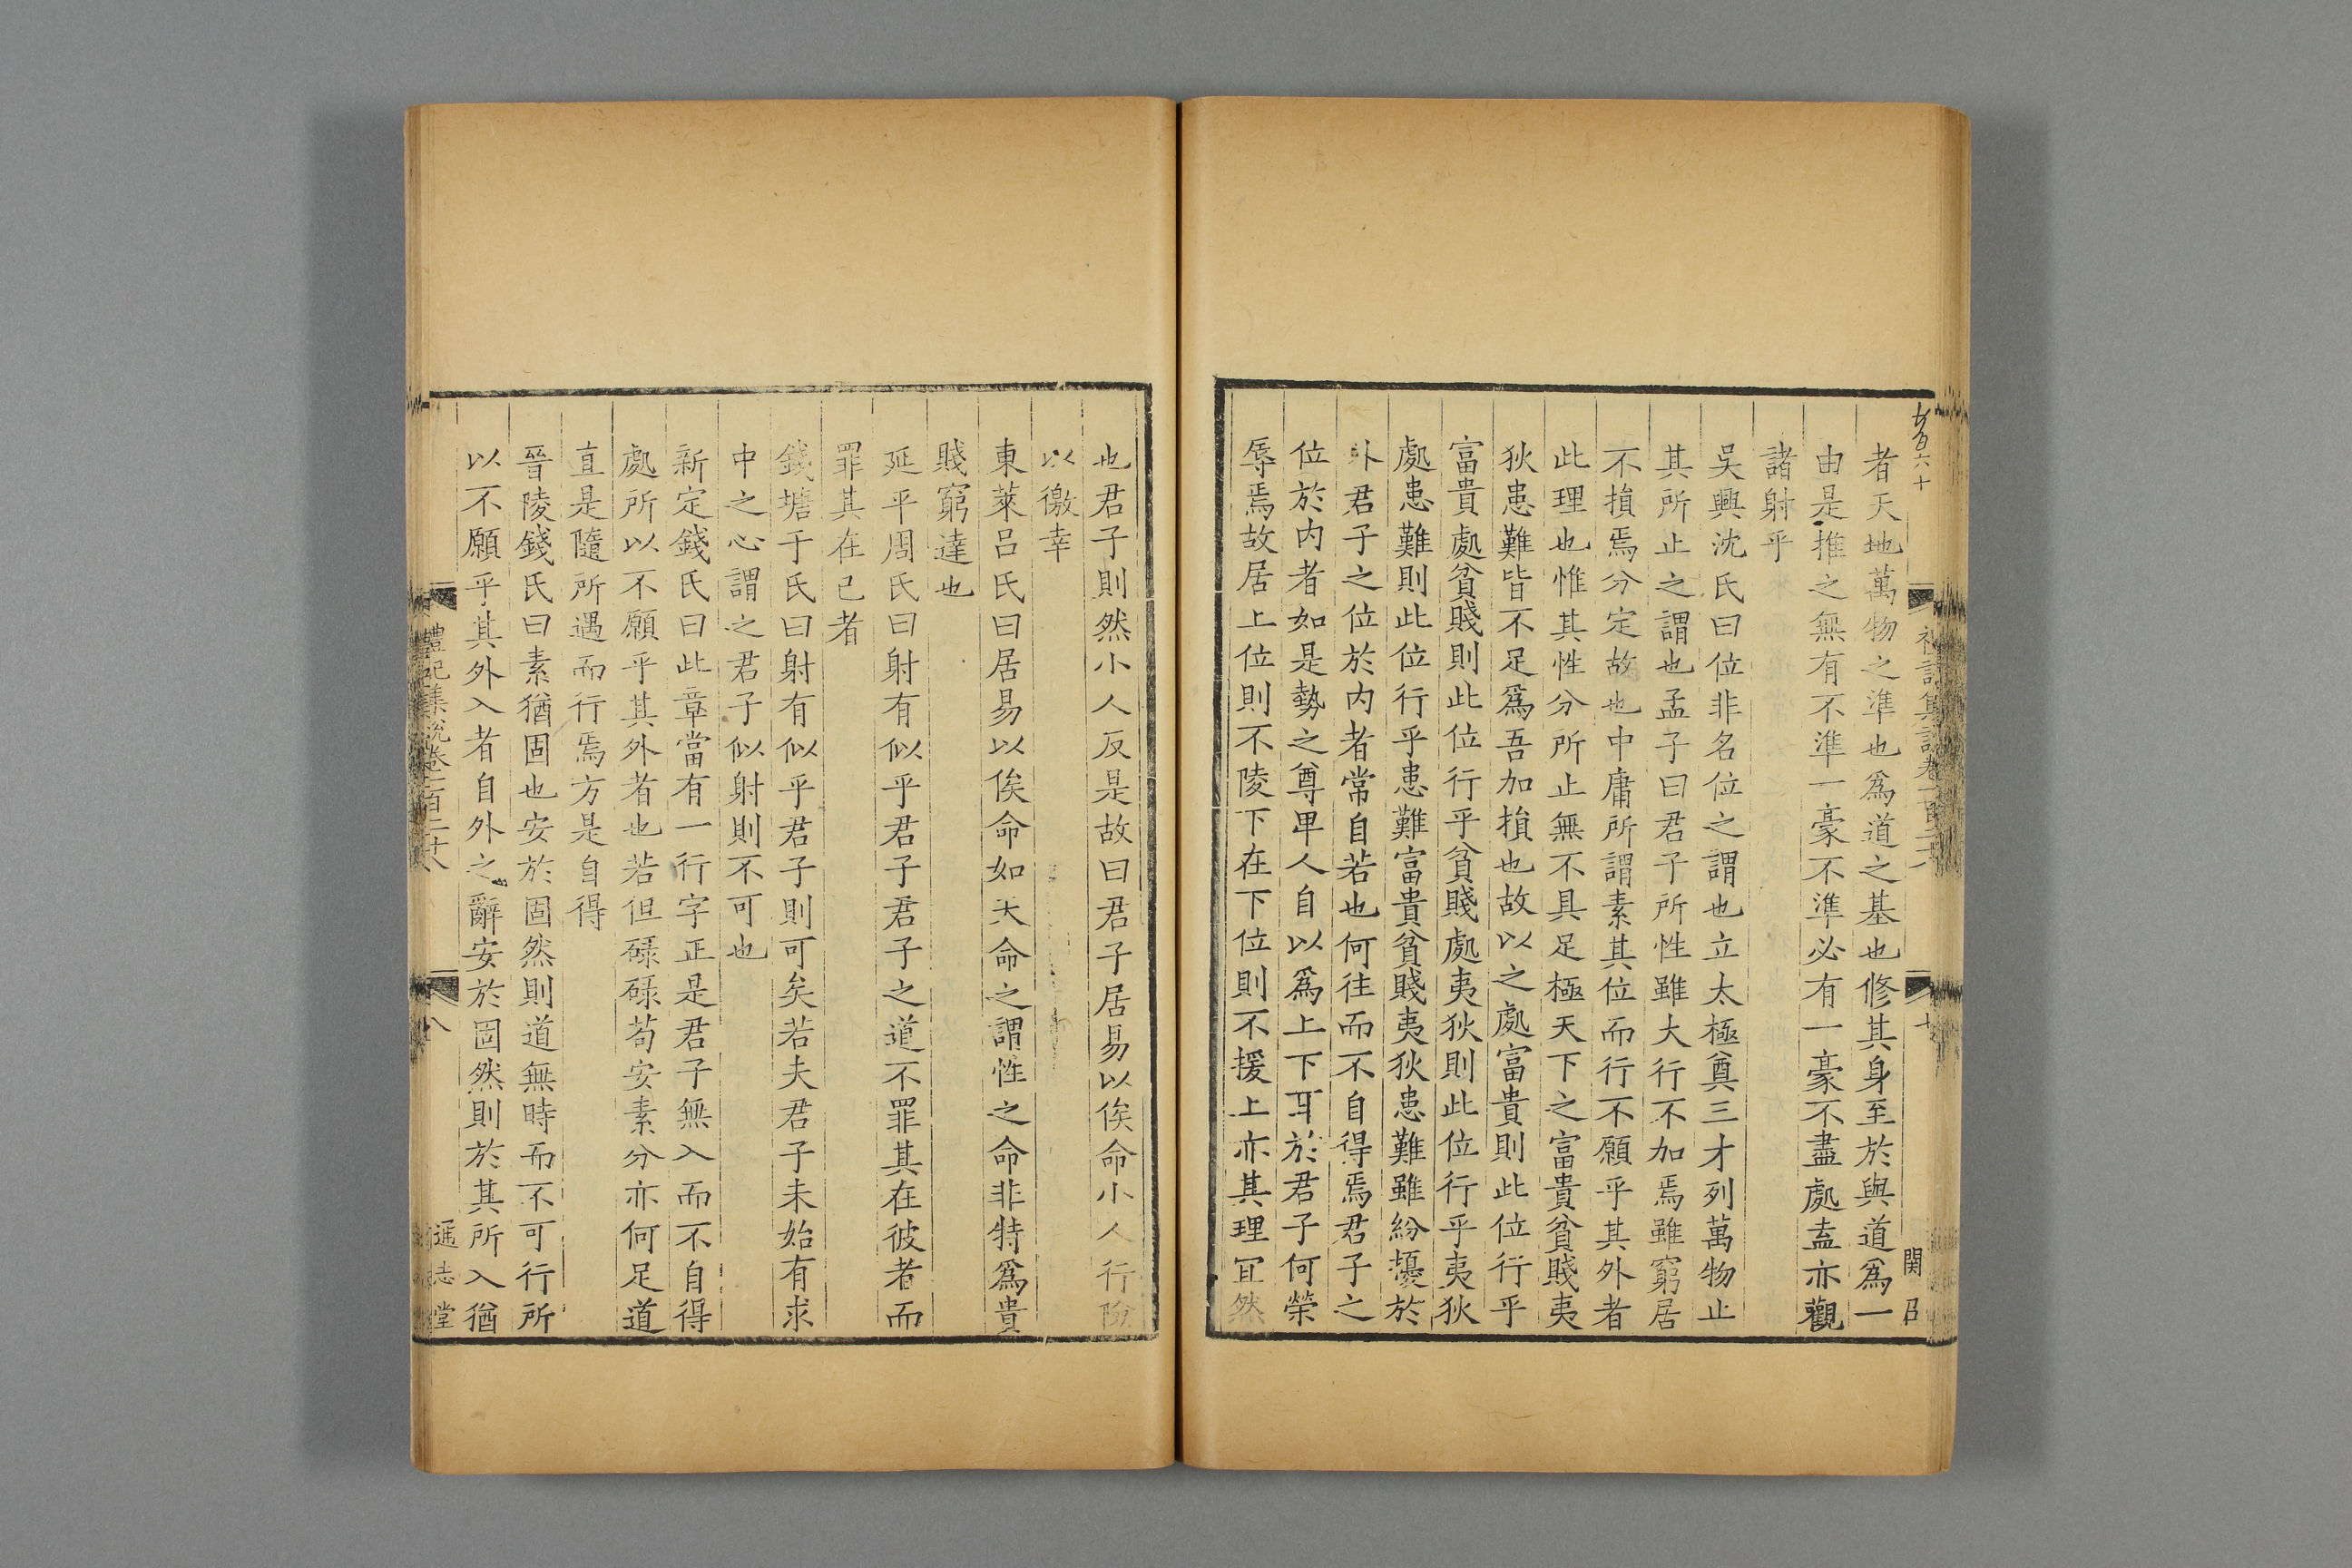 者天地萬物之準也爲道之基也修其身至於與道爲一
由是推之無有不準一豪不準必有一豪不盡處盍亦觀
諸射乎
吳興沈氏曰位非名位之謂也立太極奠三才列萬物止
其所止之謂也孟子曰君子所性雖大行不加焉雖窮居
不損焉分定故也中庸所謂素其位而行不願乎其外者
此理也惟其性分所止無不具足極天下之富貴貧賤夷
狄患難皆不足爲吾加損也故以之處富貴則此位行乎
富貴處貧賤則此位行乎貧賤處夷狄則此位行乎夷狄
處患難則此位行乎患難富貴貧賤夷狄患難雖紛擾於
外君子之位於内者常自若也何往而不自得焉君子之
位於内者如是勢之尊卑人自以爲上下耳於君子何榮
辱焉故居上位則不陵下在下位則不援上亦其理冝然
也君子則然小人反是故曰君子居易以俟命小人行險
以徼幸
東萊呂氏曰居易以俟命如天命之謂性之命非特爲貴
賤窮達也
延平周氏曰射有似乎君子君子之道不罪其在彼者而
罪其在已者
錢塘于氏曰射有似乎君子則可矣若夫君子未始有求
中之心謂之君子似射則不可也
新定錢氏曰此章當有一行字正是君子無入而不自得
處所以不願乎其外者也若但碌碌苟安素分亦何足道
直是隨所遇而行焉方是自得
晉陵錢氏曰素猶固也安於固然則道無時而不可行所
以不願乎其外入者自外之辭安於固然則於其所入猶
禮記集說卷一百二十八
八
通志堂